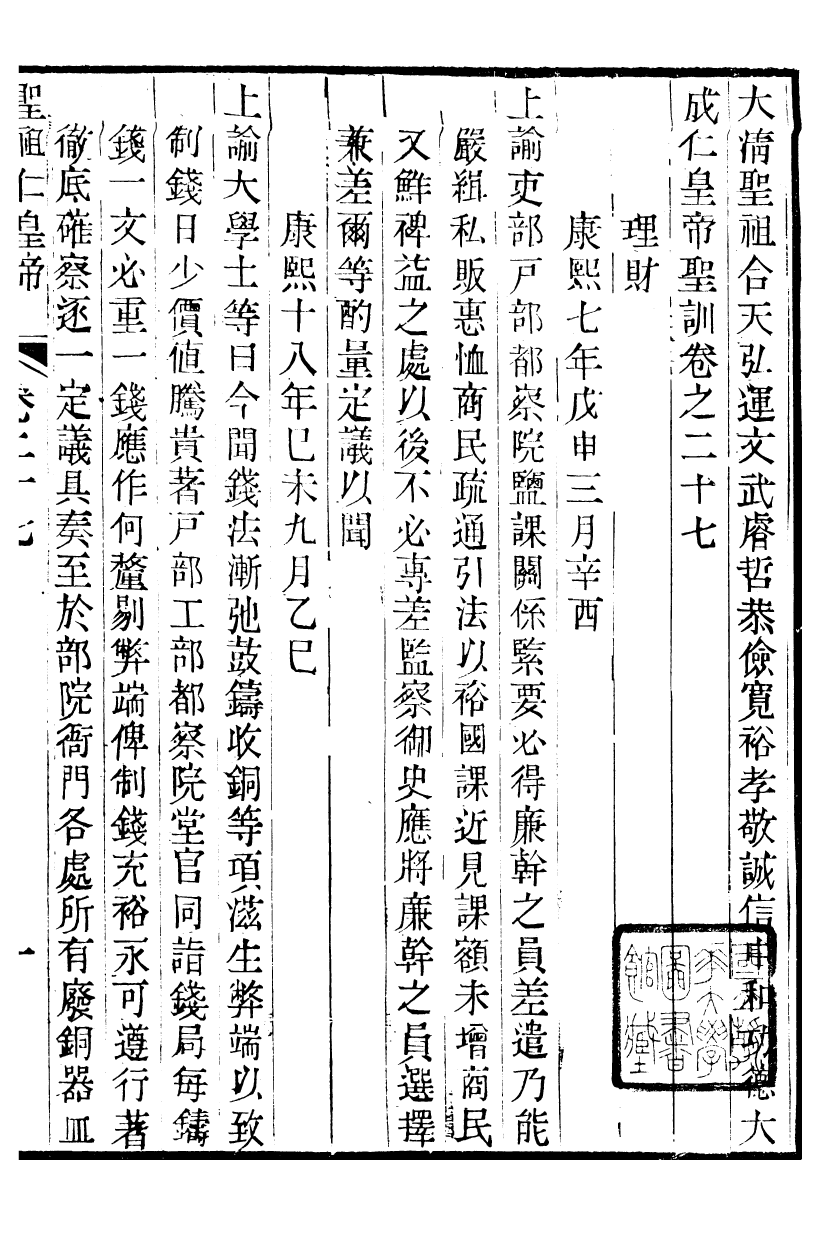 大清聖祖合天弘運文武睿哲恭儉寬裕孝敬誠信中和功德大
成仁皇帝聖訓卷之二十七
理財
康熙七年戊申三月辛酉
上諭吏部戶部都察院鹽課關係緊要必得廉幹之員差遣乃能
嚴緝私販惠恤商民疏通引法以裕國課近見課額未增商民
又鮮裨益之處以後不必專差監察御史應將廉幹之員選擇
兼差爾等酌量定議以聞
康熙十八年己未九月乙巳
上諭大學士等曰今聞錢法漸弛鼓鑄收銅等項滋生弊端以致
制錢日少價值騰貴著戶部工部都察院堂官同詣錢局每鑄
錢一文必重一錢應作何釐剔弊端俾制錢充裕永可遵行著
徹底確察逐一定議具奏至於部院衙門各處所有廢銅器皿
聖祖仁皇帝 卷二十七 一